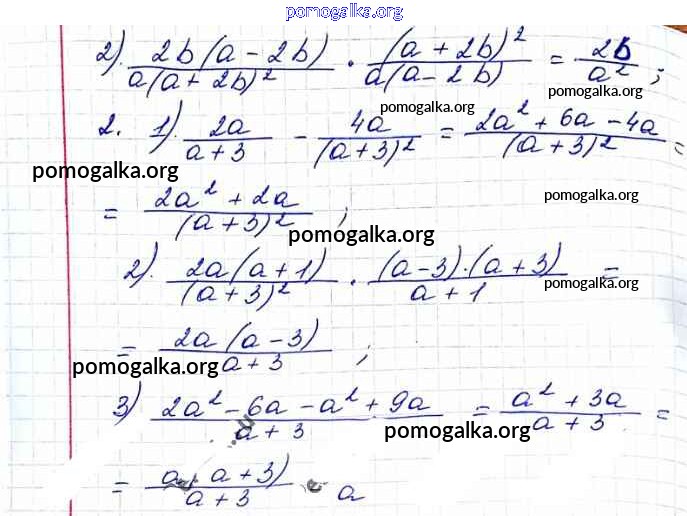 pomogalka.org
2). 2b(a - 2b) / a(a + 2b)² · (a + 2b)² / a(a - 2b) = 2b / a² ;
pomogalka.org
pomogalka.org
2. 1) 2a / a + 3 - 4a / (a + 3)² = 2a² + 6a - 4a / (a + 3)² =
pomogalka.org
pomogalka.org
= 2a² + 2a / (a + 3)² ;
pomogalka.org
2). 2a(a + 1) / (a + 3)² · (a - 3)·(a + 3) / a + 1 =
pomogalka.org
= 2a(a - 3) / a + 3 ;
pomogalka.org
3) 2a² - 6a - a² + 9a / a + 3 = a² + 3a / a + 3 =
pomogalka.org
= a(a + 3) / a + 3 = a